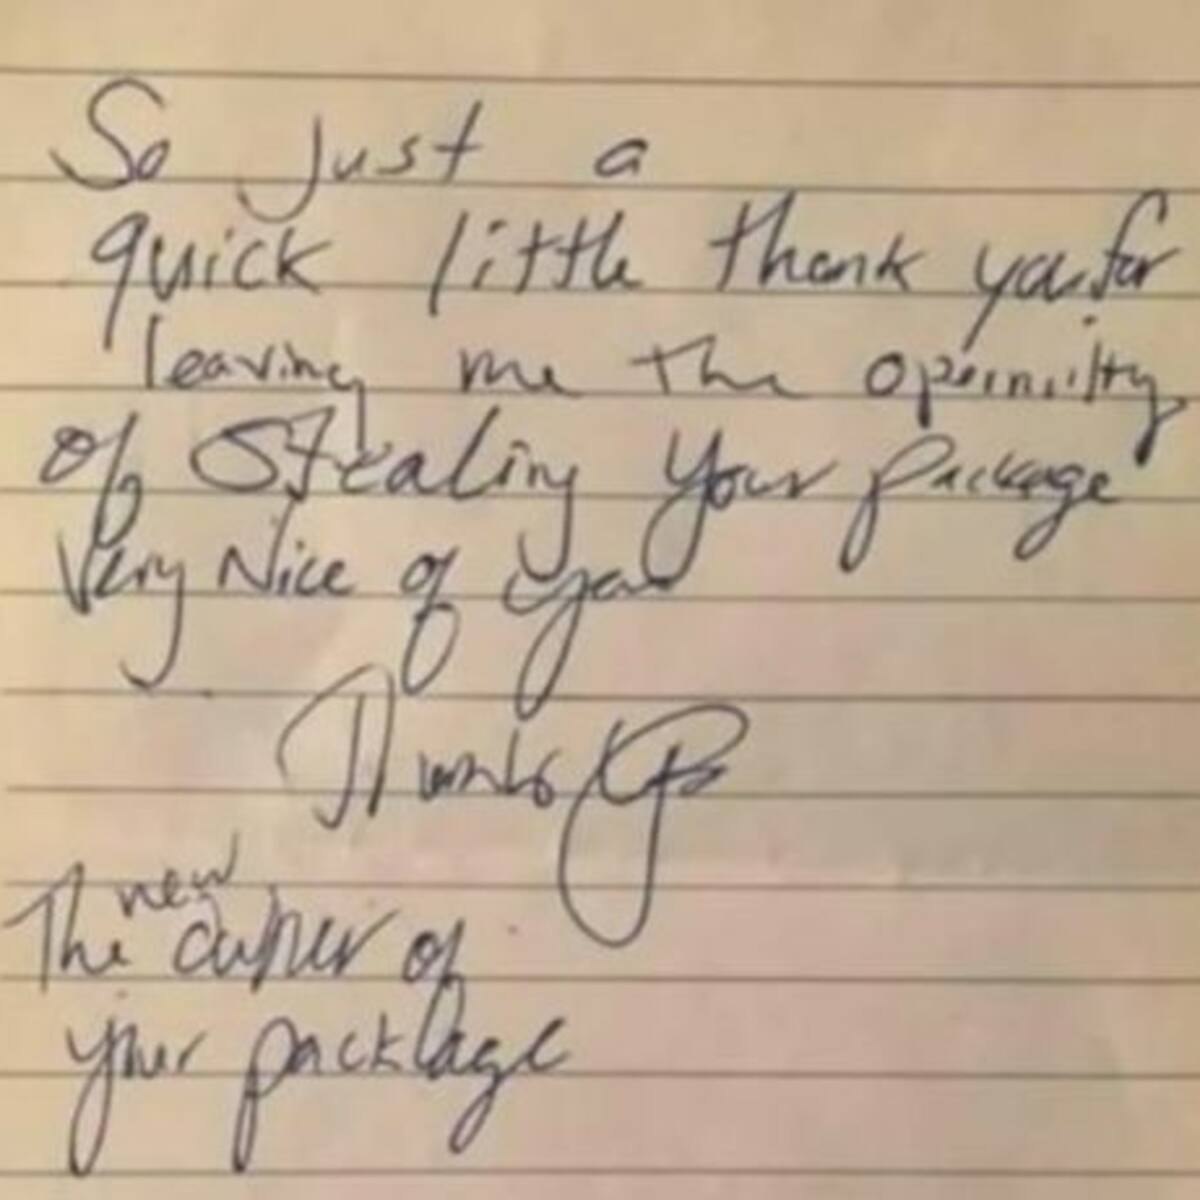 So just a
quick little thank you for
leaving me the
of stealing your package
Very Nice of you
Thanks
new
The owner of
your package